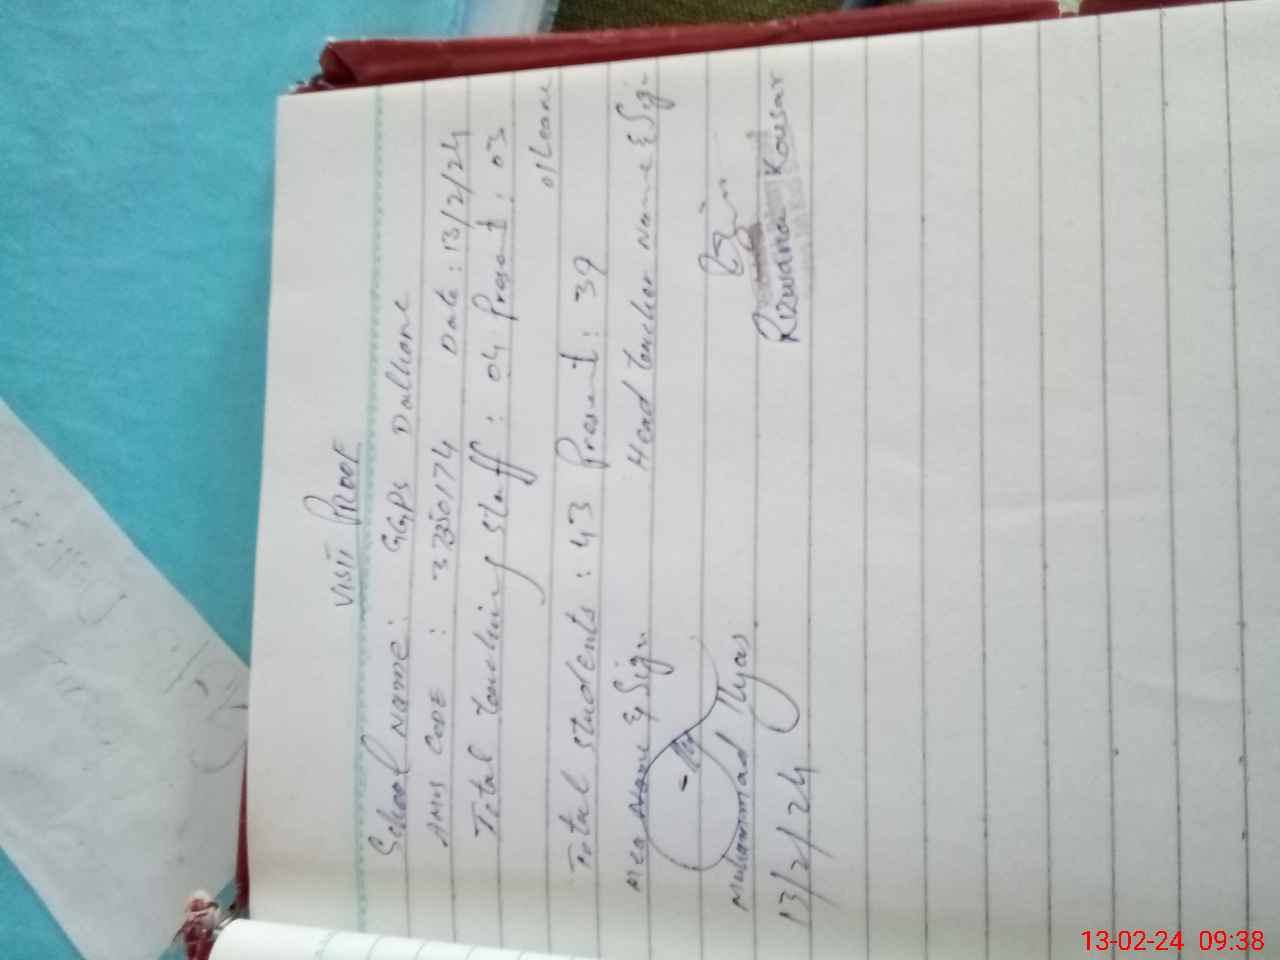 VISIT PROOF
School Name: GGPS Dalhane
Date: 13/2/24
Total teaching staff: 04 Present: 03
01 Leave
Total students: 43 Present: 39
Name & Sign
Head teacher Name & Sign
Muhammad Ilyas
Rizwana Kousar
13/2/24
13-02-24 09:38